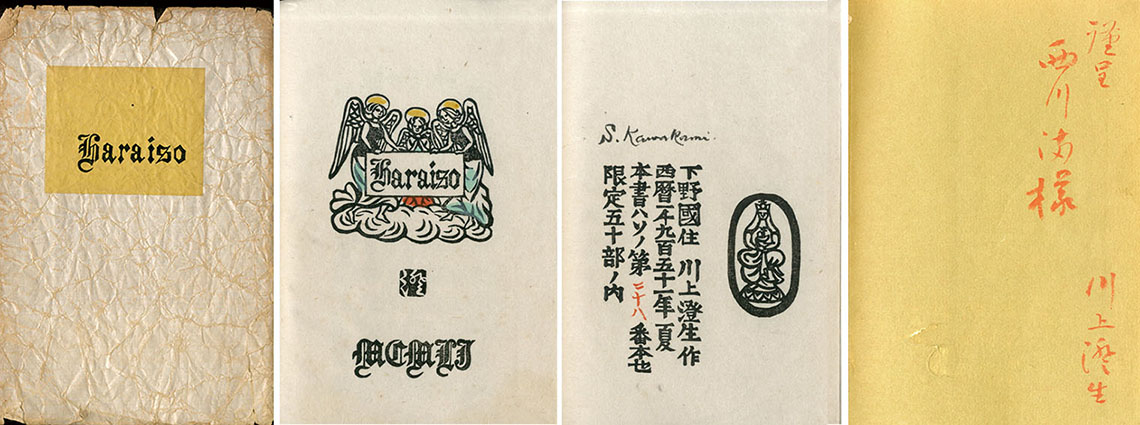 Haraiso
Haraiso
澄
MCMLI
S. Kawakami.
下野國住 川上澄生作
西暦一千九百五十一年夏
本書ハソノ第二十八番本也
限定五十部ノ内
謹呈
西川満様
川上澄生